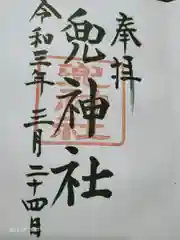 奉拝
兜神社
令和三年三月二十四日